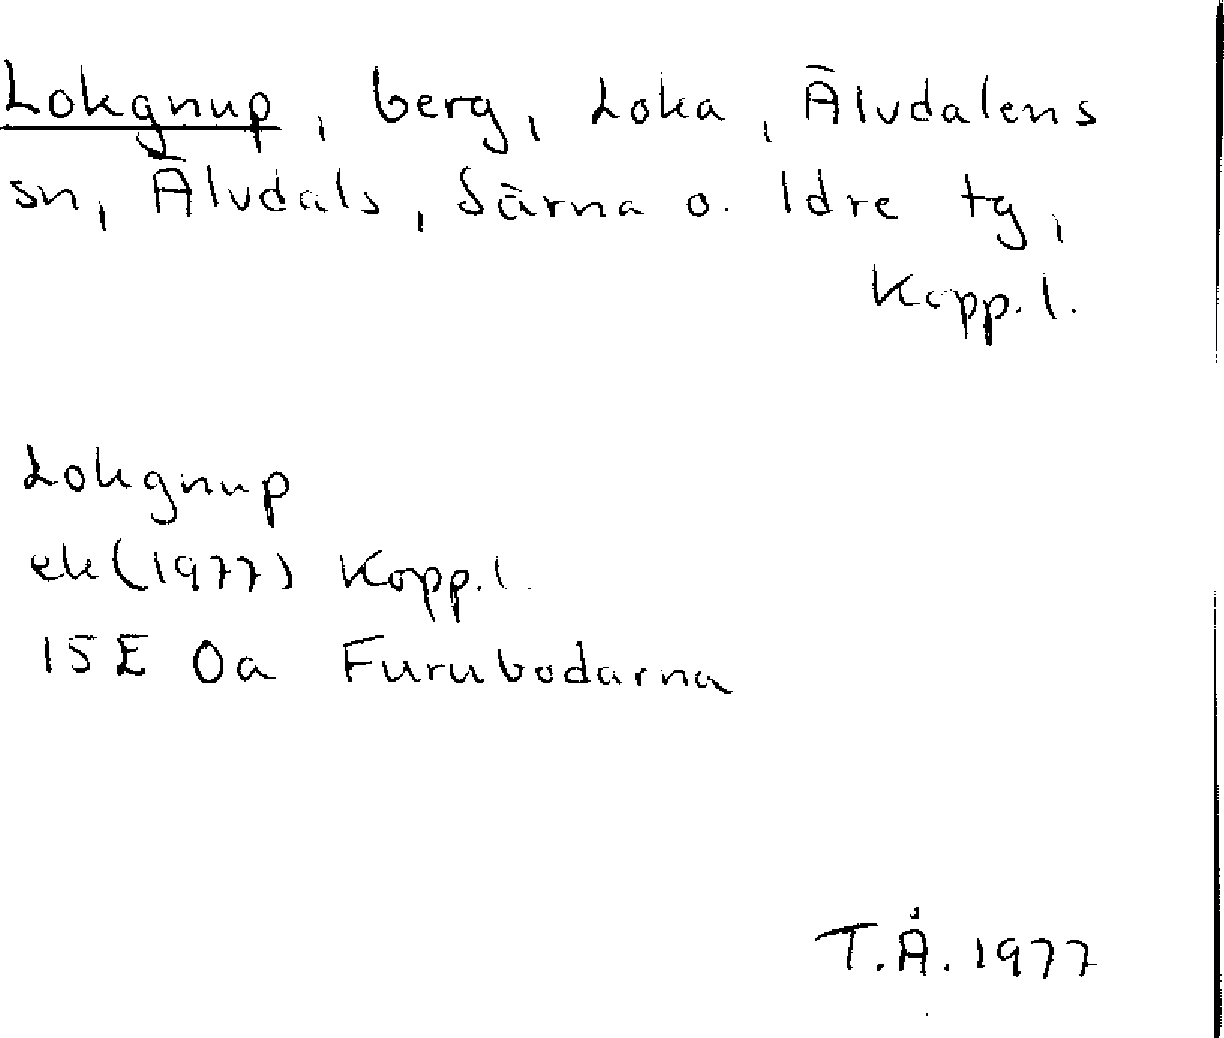 Lokgnup, berg, Loka, Älvdalens
sn, Älvdals, Särna o. Idre tg,
Kopp.l.
Lokgnup
ek(1977) Kopp.l.
15E 0a Furubodarna
T.Å. 1977